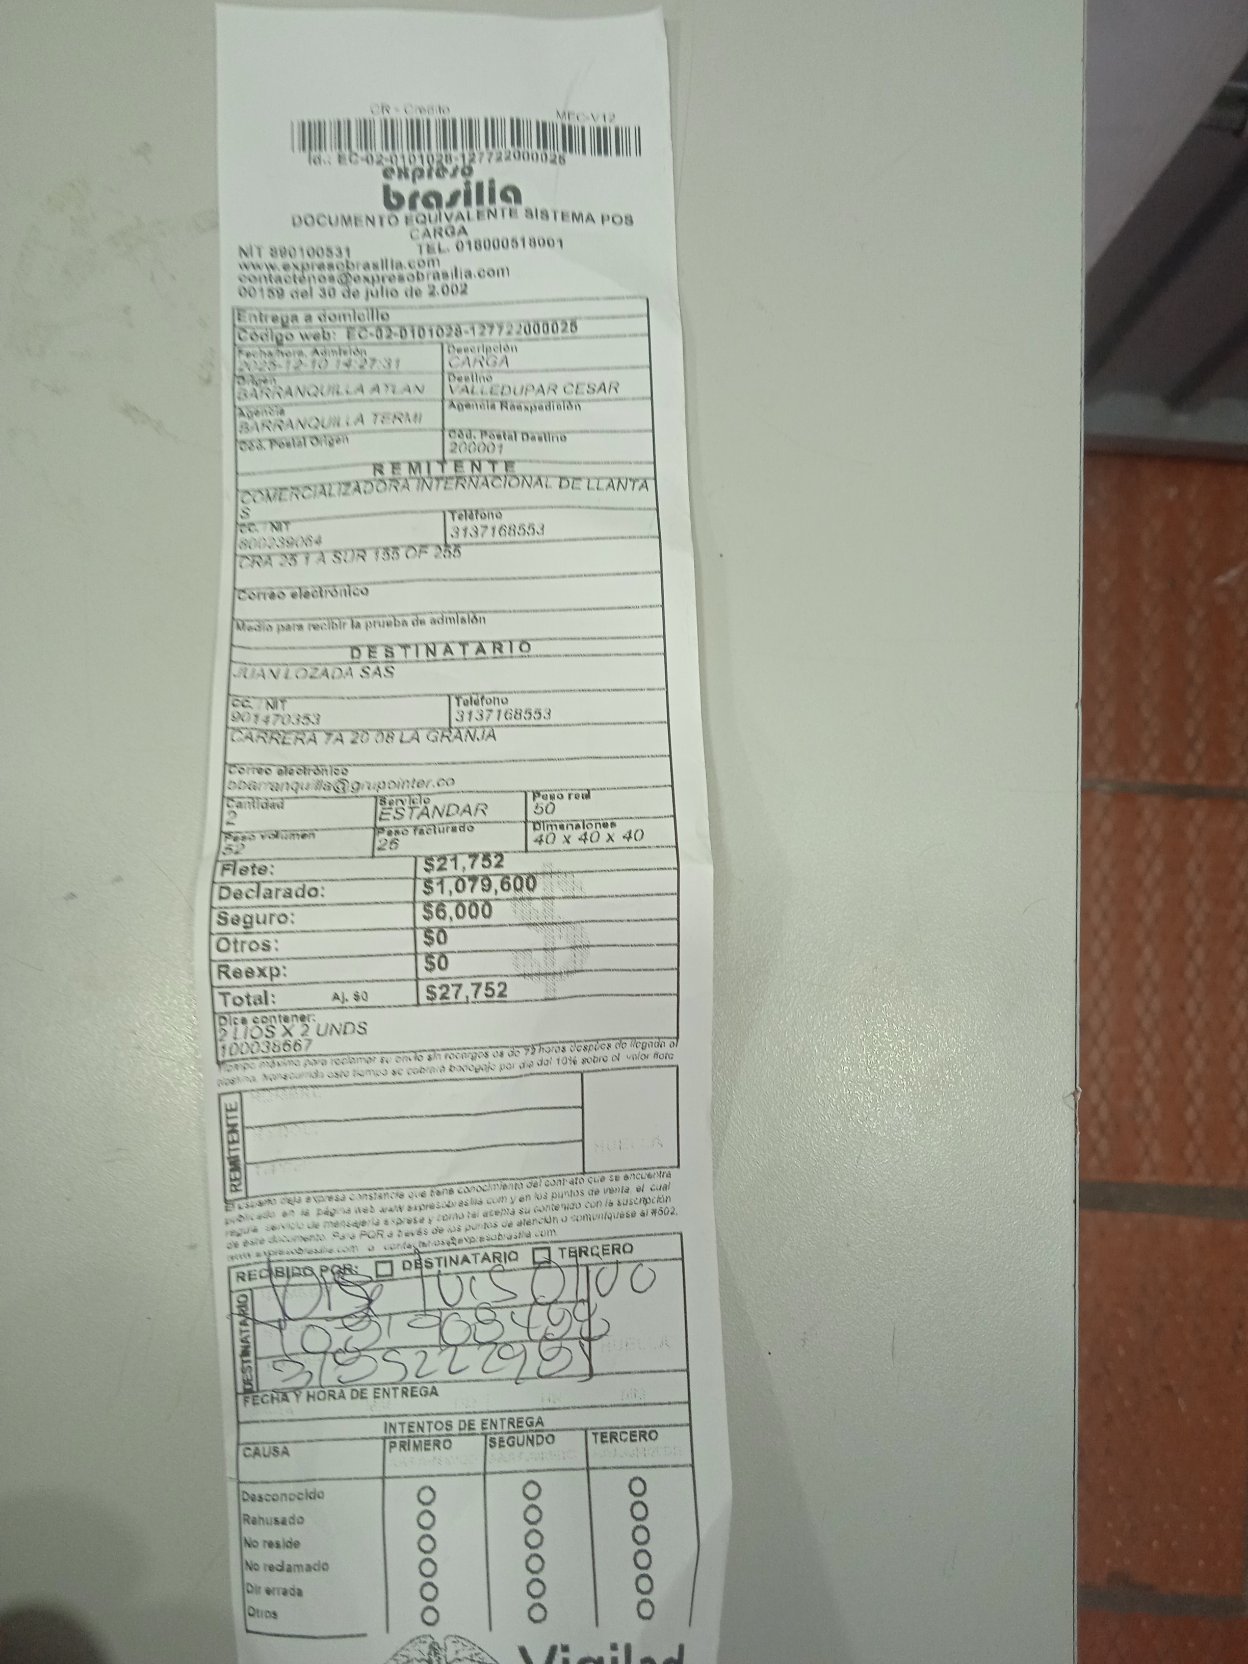 CR - Crédito MFC-V12
Id.: EC-02-0101028-127722000025
expreso
brasilia
DOCUMENTO EQUIVALENTE SISTEMA POS
CARGA
NIT 890100531 TEL. 018000518001
www.expresobrasilia.com
contactenos@expresobrasilia.com
00159 del 30 de julio de 2.002
Entrega a domicilio
Código web: EC-02-0101028-127722000025
Fecha/hora. Admisión Descripción
2025-12-10 14:27:31 CARGA
Origen Destino
BARRANQUILLA ATLAN VALLEDUPAR CESAR
Agencia Agencia Reexpedición
BARRANQUILLA TERMI
Cód. Postal Origen Cód. Postal Destino
200001
REMITENTE
COMERCIALIZADORA INTERNACIONAL DE LLANTA
S
CC. / NIT Teléfono
800239064 3137168553
CRA 25 1 A SUR 155 OF 255
Correo electrónico
Medio para recibir la prueba de admisión
DESTINATARIO
JUAN LOZADA SAS
CC. / NIT Teléfono
901470353 3137168553
CARRERA 7A 20 08 LA GRANJA
Correo electrónico
bbarranquilla@grupointer.co
Cantidad Servicio Peso real
2 ESTANDAR 50
Peso volumen Peso facturado Dimensiones
52 26 40 x 40 x 40
Flete: $21,752
Declarado: $1,079,600
Seguro: $6,000
Otros: $0
Reexp: $0
Total: Aj. $0 $27,752
Dice contener:
2 LIOS X 2 UNDS
100038667
Tiempo máximo para reclamar su envío sin recargos es de 72 horas después de llegada al
destino, transcurrido este tiempo se cobrará bodegaje por día del 10% sobre el valor flete
REMITENTE
HUELLA
El usuario deja expresa constancia que tiene conocimiento del contrato que se encuentra
publicado en la página web www.expresobrasilia.com y en los puntos de venta, el cual
regula servicio de mensajería expresa y como tal acepta su contenido con la suscripción
de este documento. Para PQR a través de los puntos de atención o comuníquese al #502,
www.expresobrasilia.com o contactenos@expresobrasilia.com
RECIBIDO POR: DESTINATARIO TERCERO
DESTINATARIO
HUELLA
FECHA Y HORA DE ENTREGA
INTENTOS DE ENTREGA
CAUSA PRIMERO SEGUNDO TERCERO
Desconocido
Rehusado
No reside
No reclamado
Dir errada
Otros